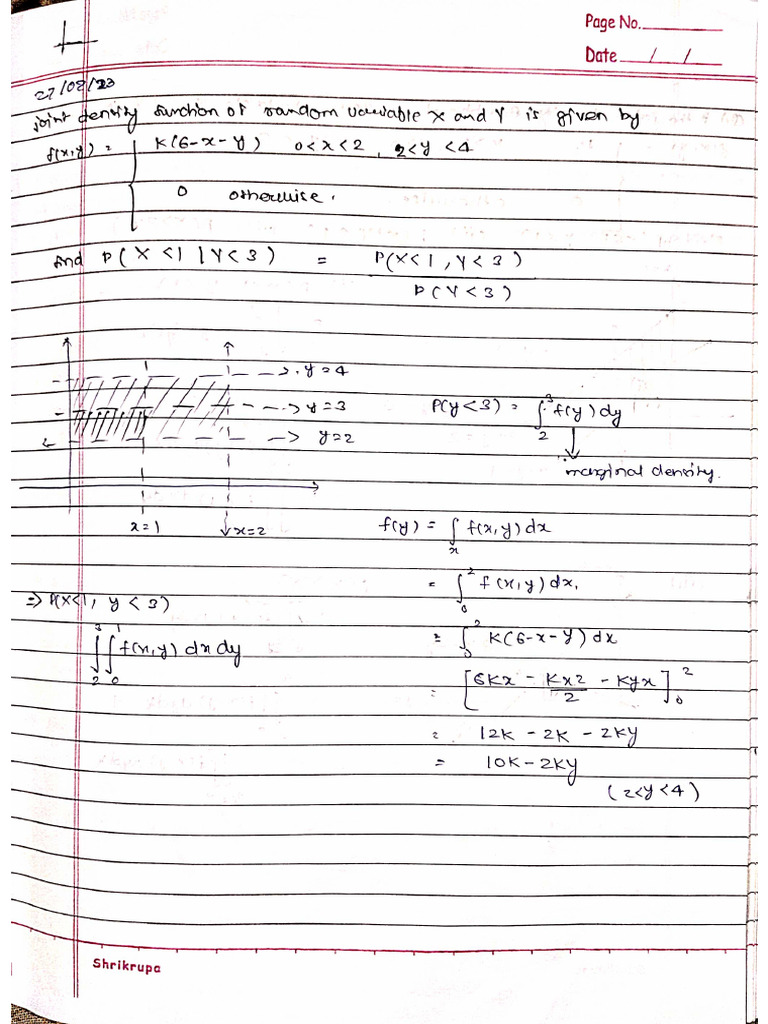 Page No.
Date / /
27/02/23
joint density function of random variable X and Y is given by
f(x,y) = K(6-x-y) 0<x<2, 2<y<4
0 otherwise.
find P(X<1 | Y<3) = P(X<1, Y<3)
P(Y<3)
y=4
y=3
y=2
x=1
x=2
P(y<3) = ∫₂³ f(y) dy
marginal density.
f(y) = ∫ₓ f(x,y) dx
= ∫₀² f(x,y) dx,
⇒ P(X<1, y<3)
∫₂³ ∫₀¹ f(x,y) dx dy
= ∫₀² K(6-x-y) dx
= [6Kx - Kx2/2 - Kyx]₀²
= 12K - 2K - 2Ky
= 10K - 2Ky
(2<y<4)
Shrikrupa